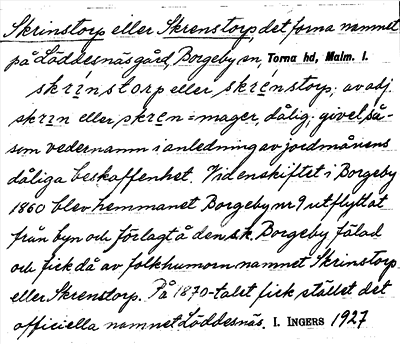 Skrinstorp eller Skrenstorp, det forna namnet
på Löddesnäsgård, Borgeby sn, Torna hd, Malm. l.
skrínstorp eller skrénstorp; av adj.
skrin eller skren = mager, dålig; givet så-
som vedernamn i anledning av jordmånens
dåliga beskaffenhet. Vid enskiftet i Borgeby
1860 blev hemmanet Borgeby nr 9 utflyttat
från byn och förlagt å den s.k. Borgeby fälad
och fick då av folkhumorn namnet Skrinstorp
eller Skrenstorp. På 1870-talet fick stället det
officiella namnet Löddesnäs. I. INGERS 1927